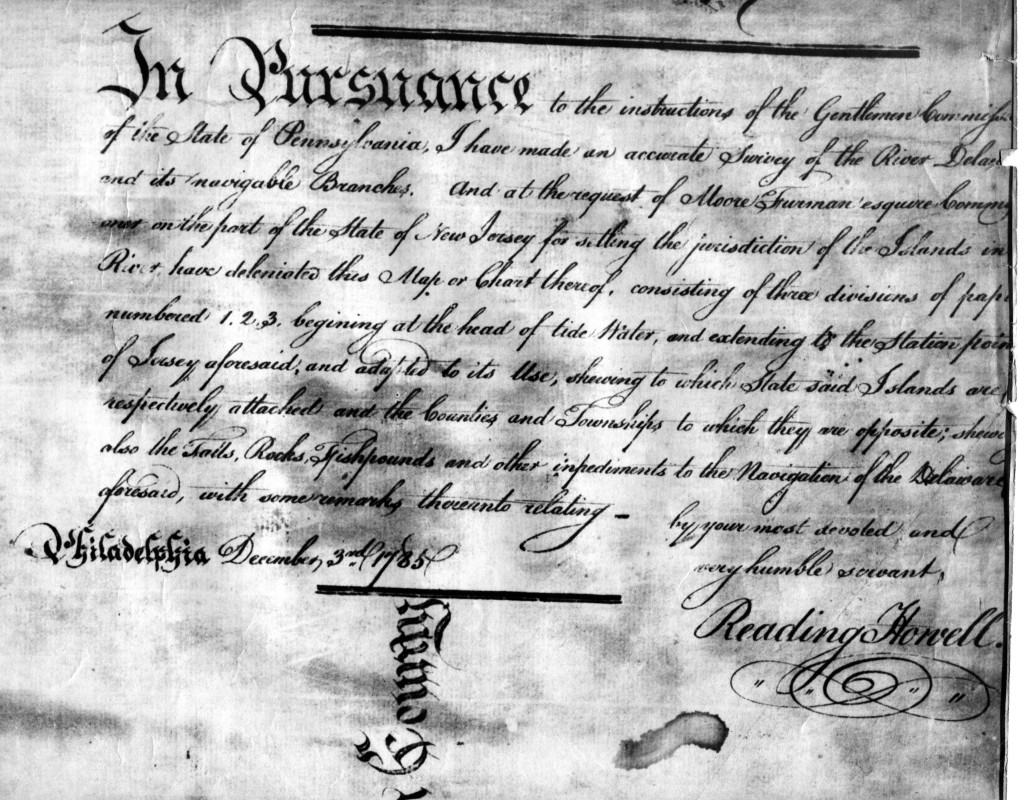 In Pursuance to the instructions of the Gentlemen Commiss
of the State of Pennsylvania, I have made an accurate Survey of the River Delaw
and its navigable Branches. And at the request of Moore Furman esquire Commis
oner on the part of the State of New Jersey for setling the jurisdiction of the Islands in
River, have deleniated this Map or Chart thereof, consisting of three divisions of pape
numbered 1. 2. 3. begining at the head of tide Water, and extending to the Station poin
of Jersey aforesaid, and adapted to its Use, shewing to which State said Islands are
respectively attached and the Counties and Townships to which they are opposite; shewi
also the Falls, Rocks, Fishpounds and other inpediments to the Navigation of the Delaware
aforesaid, with some remarks thereunto relating _
by your most devoted and
very humble servant,
Philadelphia December, 3rd 1785
Reading Howell.